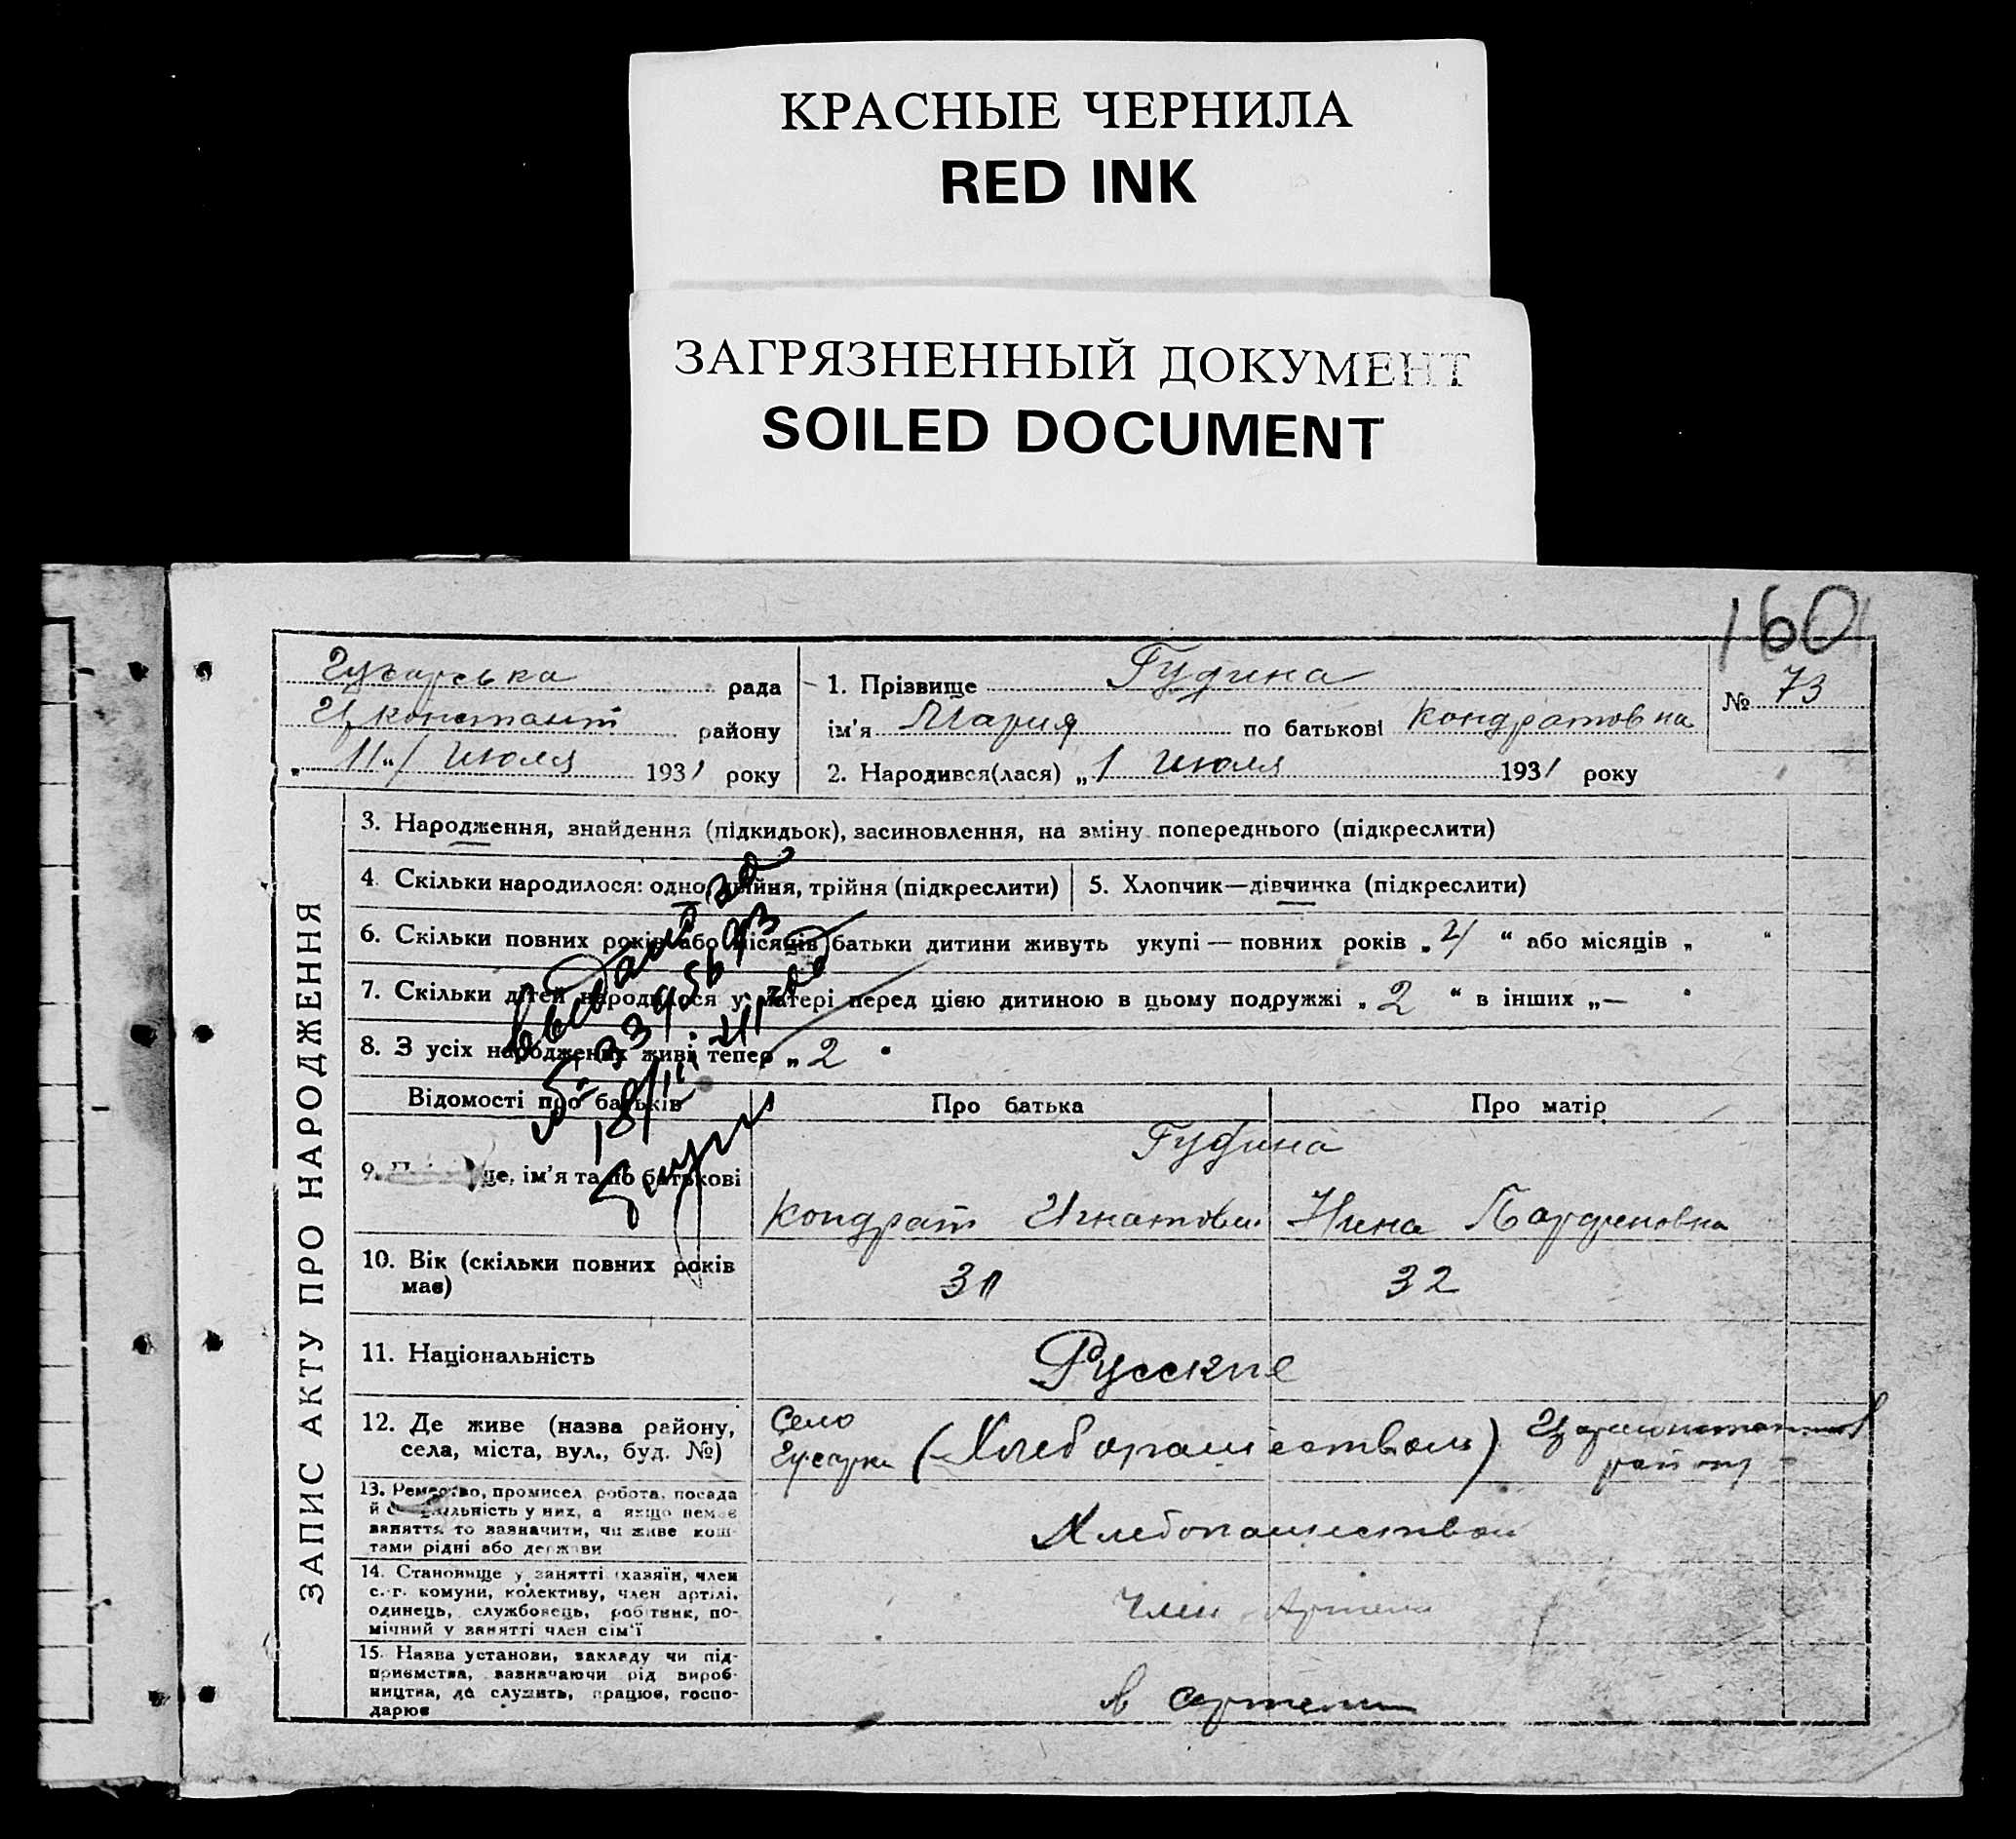 КРАСНЫЕ ЧЕРНИЛА
RED INK
ЗАГРЯЗНЕННЫЙ ДОКУМЕНТ
SOILED DOCUMENT
160
рада
Ц констант району
11 / июля 1931 року
1. Прізвище Гудина
ім'я Мария по батькові Кондратовна
2. Народився(лася) „1 июля 1931 року
№ 73
ЗАПИС АКТУ ПРО НАРОДЖЕННЯ
3. Народження, знайдення (підкидьок), засиновлення, на зміну попереднього (підкреслити)
4. Скільки народилося: одно, двійня, трійня (підкреслити)
5. Хлопчик—дівчинка (підкреслити)
6. Скільки повних років або місяців батьки дитини живуть укупі — повних років „ “ або місяців „ “
7. Скільки дітей народилося у матері перед цією дитиною в цьому подружжі „ 2 “ в інших „ — “
8. З усіх народжених живі тепер „ 2 “
Відомості про батьків
Про батька
Про матір
9. ім'я та по батькові
Гудина
Кондрат Игнатович
Нина Парфеновна
10. Вік (скільки повних років
має)
31
32
11. Національність
Русские
12. Де живе (назва району,
села, міста, вул., буд. №)
Село
(Хлебопашеством)
району
13. Ремество, промисел робота, посада
й у них, а якщо немає
заняття то зазначити, чи живе кош-
тами рідні або держави
Хлебопашеством
14. Становище у занятті (хазяїн, член
с.-г. комуни, колективу, член артілі,
одинець, службовець, робітник, по-
мічний у занятті член сім'ї
Член Артели
15. Назва установи, закладу чи під-
приємства, зазначаючи рід вироб-
ництва, де служить, працює, госпо-
дарює
в артели